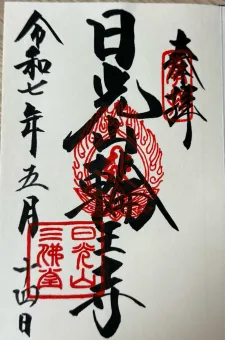 奉拝
日光山輪王寺
日光山
三佛堂
令和七年五月十四日